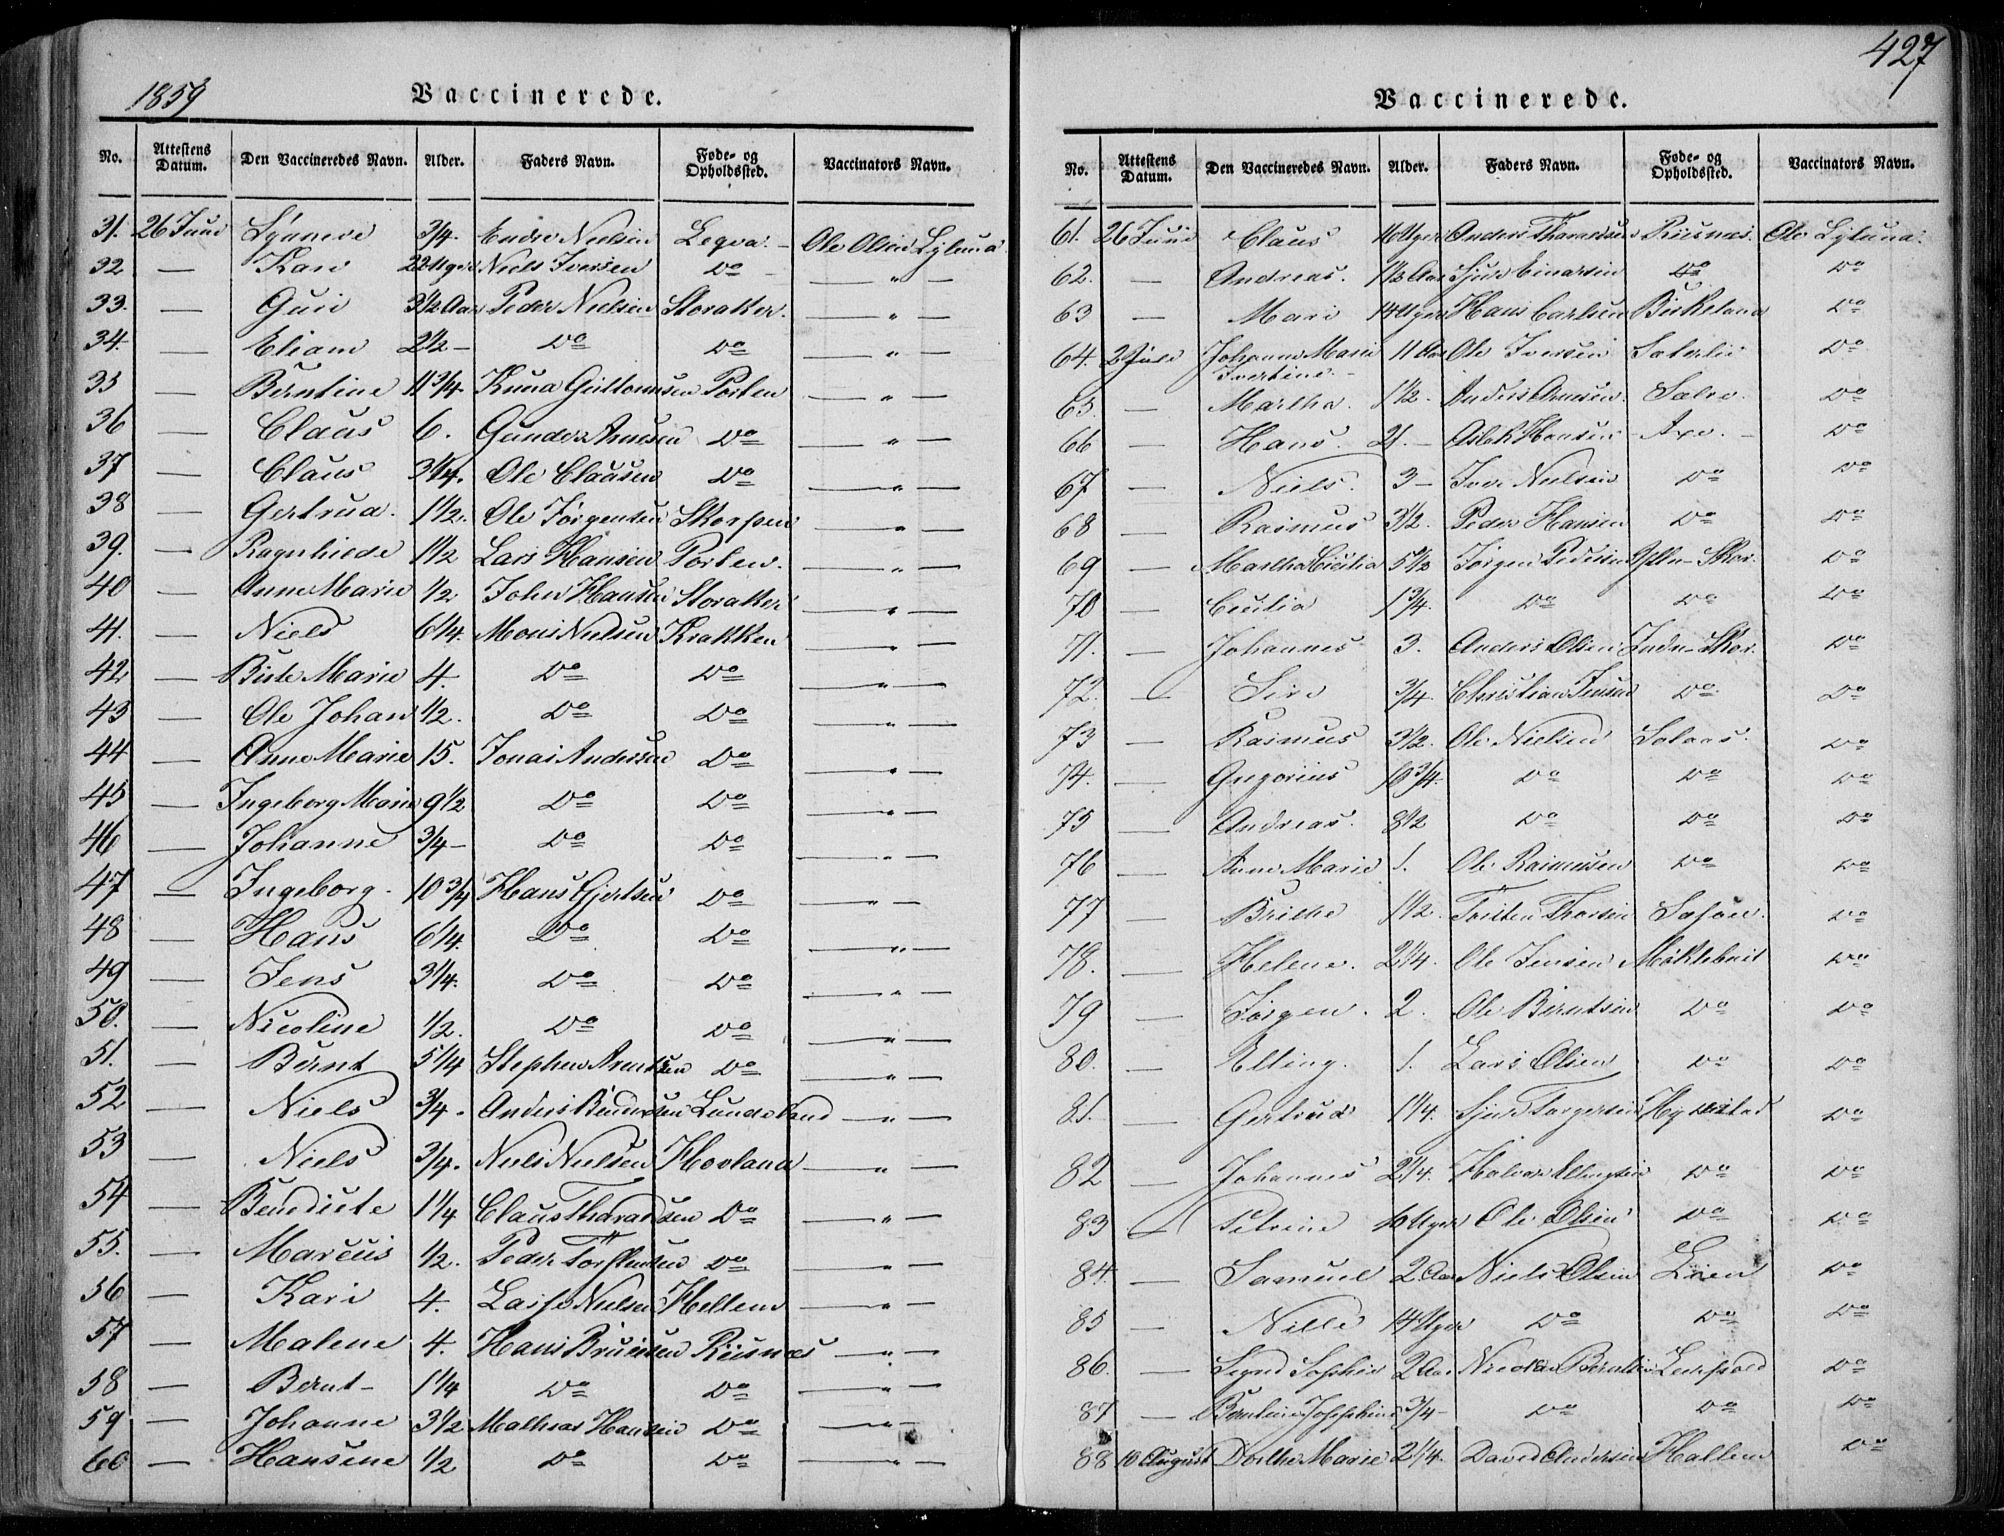 1859
Vaccinerede.
No. Attestens Datum. Den Vaccineredes Navn. Alder. Faders Navn. Føde- og Opholdssted. Vaccinators Navn.
31. 26 Juni Synneve 3/4. Endre Nielsen Legva. Ole Olsen
32 — Kari 22 Uger Niels Iversen Do — " —
33. — Guri 3 1/2 Aar Peder Nielsen Storakker. — " —
34. — Eliam 2 1/2 — Do Do — " —
35 — Berntine 11 3/4. Knud Guttormsen Porten — " —
36 — Claus 6. Gunder Arnesen Do — " —
37 — Claus 3 1/4. Ole Claussen Do — " —
38 — Gertrud. 1 1/2. Ole Jørgensen Skorpen — " —
39. — Ragnhilde 1 1/2 Lars Hansen Porten. — " —
40 — Anne Marie 1/2 John Hansen Storakker — " —
41. — Niels 6 1/4. Mons Nielsen Krakken — " —
42 — Birte Marie 4. Do Do — " —
43 — Ole Johan 1/2. Do Do — " —
44 — Anne Marie 15. Jonas Andersen Do — " —
45 — Ingeborg Marie 9 1/2 Do Do — " —
46 — Johanne 3/4 — Do Do — " —
47 — Ingeborg. 10 3/4 Hans Gjertsen Do — " —
48 — Hans 6 1/4. Do Do — " —
49 — Jens 3 1/4. Do Do — " —
50. — Nicoline 1/2. Do Do — " —
51. — Bernt 5 1/4 Stephen Arentsen Do — " —
52 — Niels 3/4. Anders Lunde — " —
53 — Niels 3/4. Niels Nielsen Hovland — " —
54 — Bendicte 1 1/4 Claus Do — " —
55. — Marcus 1/2. Peder Torstensen Do — " —
56 — Kari 4. Lasse Nielsen Heltem — " —
57 — Malene 4. Hans Riisnæs — " —
58 — Bernt — 1 1/4 Do Do — " —
59 — Johanne 3 1/2 Mathias Hansen Do — " —
60 — Hansine 1/2 Do Do — " —
427
Vaccinerede.
No. Attestens Datum. Den Vaccineredes Navn. Alder. Faders Navn. Føde- og Opholdssted. Vaccinators Navn.
61. 26 Juni Claus 16 Uger Anders Riisnæs. Ole
62. — Andreas. 1 1/2 Aar Sjur Einarsen Do Do
63 — Mari 14 Uger Hans Carlsen Birkeland Do
64. 2 Juli Johanne Marie 11 Aar Ole Iversen Do
Ivertine. —
65. — Martha. 1 1/2. Anders Do
66 — Hans. 21. — Aslak Hansen Axe. — Do
67 — Niels. 3 — Iver Nielsen Do Do
68 — Rasmus 3 1/2. Peder Hansen Do Do
69 — Martha Cicilia 5 1/2 Jørgen Pedersen Skor. Do
70 — Cecilia 1 3/4. Do Do Do
71. — Johannes 3. Anders Olsen Indre Skor. Do
72. — Siri 3/4 Christian Jensen Do Do
73 — Rasmus 3 1/2. Ole Nielsen Solaas. Do
74. — Gregorius 10 3/4. Do Do Do
75 — Andreas. 8 1/2 Do Do Do
76 — Anne Marie 1. Ole Rasmussen Do Do
77 — Brithe 1 1/2. Torsten Do
78. — Helene. 2 1/4. Ole Jensen Møklebust Do
79 — Jørgen. 2. Ole Berntsen Do Do
80. — Elling. 1. Lars Olsen Do Do
81. — Gertrud 1 1/4. Sjur Torgersen Do
82 — Johannes 2 1/4. Halvor Ellingsen Do Do
83 — Petrine 16 Uger Ole Olsen Do Do
84. — Samuel 2 Aar Niels Olsen Lien Do
85 — Nille 14 Uger Do Do Do
86. — Sophie 2 Aar Nicolai Berntsen Do
87 — Berntine Josephine 3/4 — Do Do Do
88 10 August Dorthe Marie 2 1/4. David Andersen Hallem Do